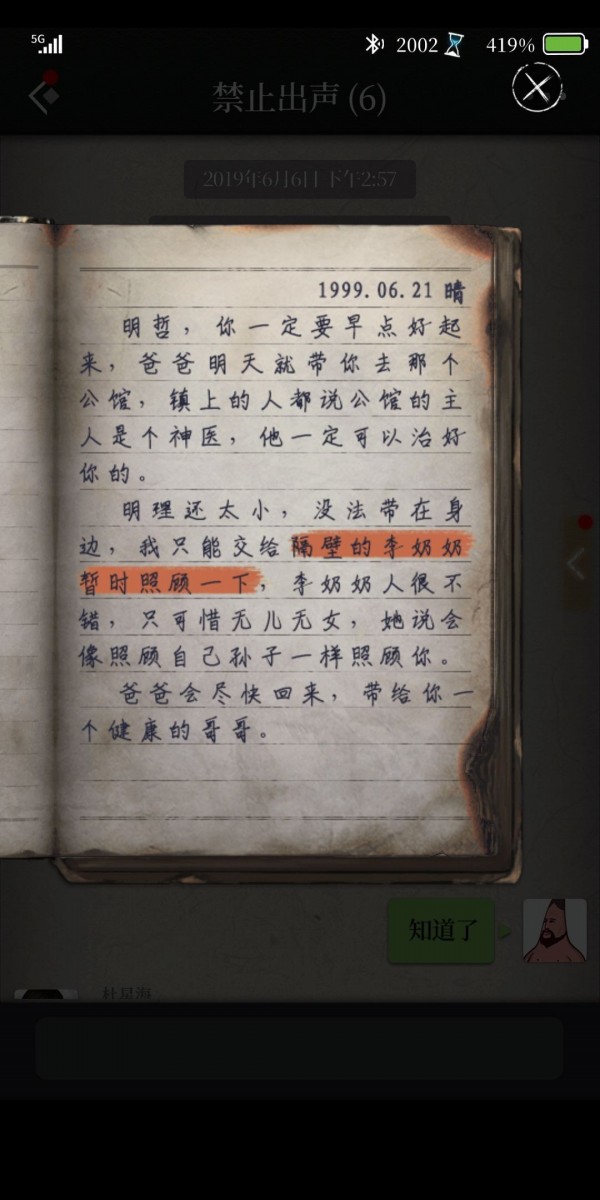 5G
2002
419%
禁止出声 (6)
2019年6月6日 下午2:57
1999.06.21 晴
明哲，你一定要早点好起
来，爸爸明天就带你去那个
公馆，镇上的人都说公馆的主
人是个神医，他一定可以治好
你的。
明理还太小，没法带在身
边，我只能交给隔壁的李奶奶
暂时照顾一下，李奶奶人很不
错，只可惜无儿无女，她说会
像照顾自己孙子一样照顾你。
爸爸会尽快回来，带给你一
个健康的哥哥。
知道了